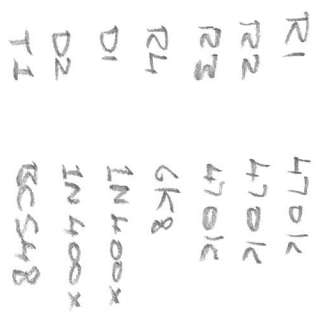 R1 470K
R2 470K
R3 470K
R4 6K8
D1 1N400x
D2 1N400x
T1 BC548